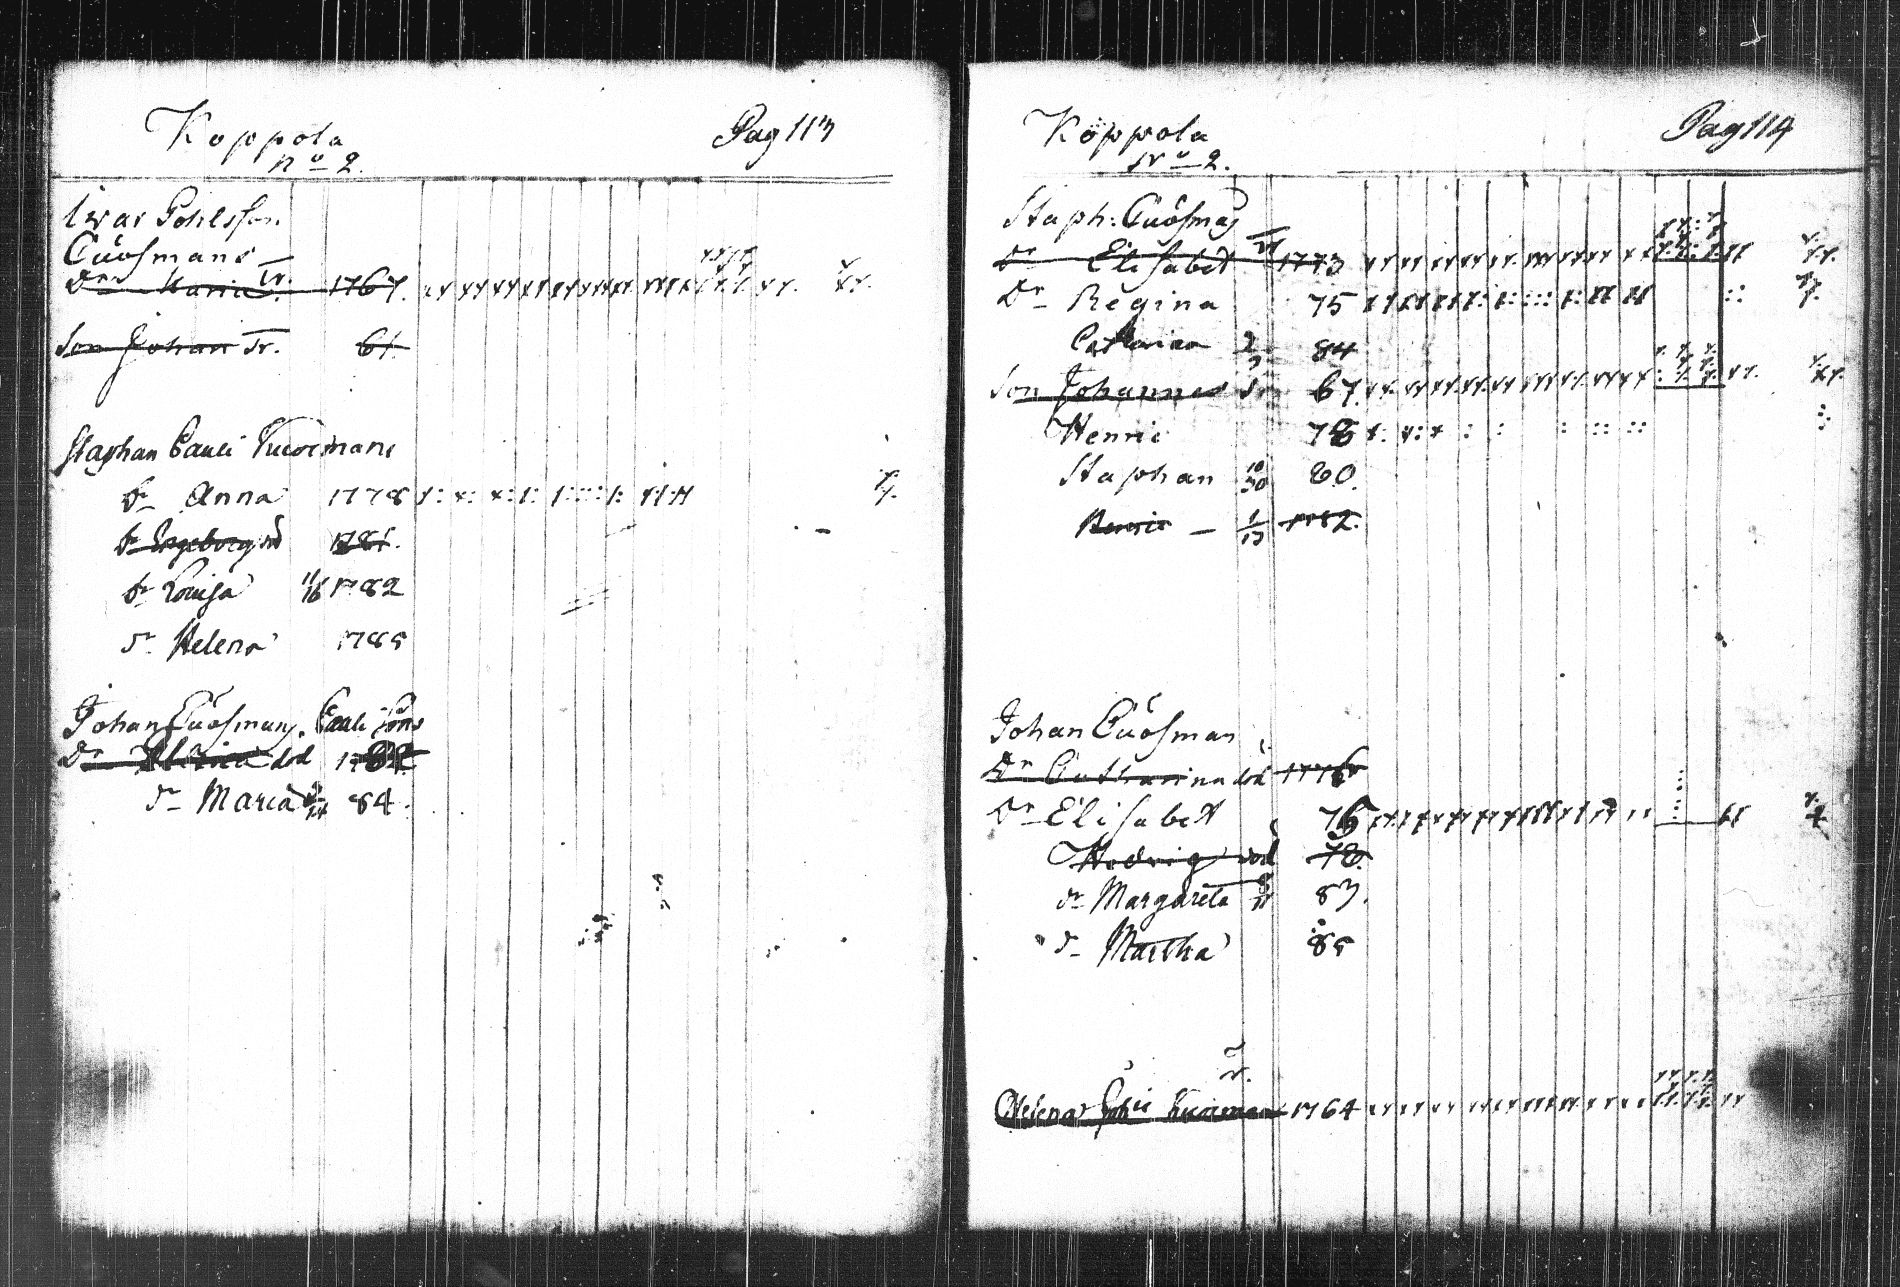 Koppola
No 2.
Pag 113
Iwar Pohlsson
Cuosmans
Dr Maria Tr. 1767.
Son Johan Tr. 61
Staphan Pauli Cuosmans
Dr Anna 1778
Dr Ingeborg död 1781.
Dr Lovisa 11/16 1782
Dr Helena 1785
Johan Cuosmans, Pauli Sons
Dr död 1782
Dr Maria 84.
Köppola
No 2.
Pag 114
Staph: Cuosmans
Dr Elisabet 1773
Dr Regina 75
Catharina 84
Son Johannes Tr 67
Henric 78
Staphan 10/30 80.
Henric — 1/13 1782.
Johan Cuosman
Dr Catharina död 1776
Dr Elisabet 76
Hedvig död 78
Dr Margareta 83.
Dr Martha 85
Tr.
Helena Joh: Cuosman 1764